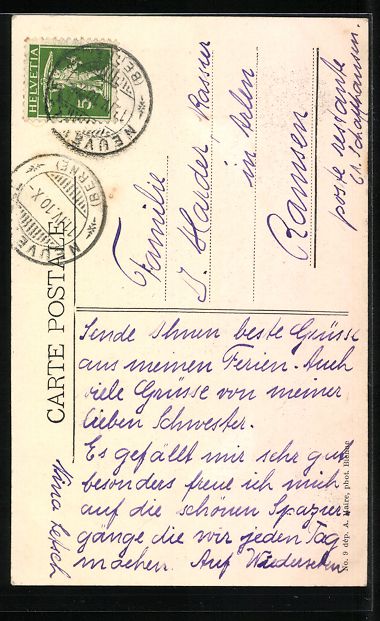 HELVETIA
5
NEUVE
(BERNE)
NEUVE
(BERNE)
7.VI.10.X-
CARTE POSTALE
Familie
J. Harder, Kassier
in Arlen
Ramsen
poste restante
Ct. Schaffhausen.
Sende Ihnen beste Grüsse
aus meinen Ferien. Auch
viele Grüsse von meiner
lieben Schwester.
Es gefällt mir sehr gut
besonders freue ich mich
auf die schönen Spazier-
gänge die wir jeden Tag
machen. Auf Wiedersehen
Nina
No. 9 dép. A. Maire, phot. Bienne